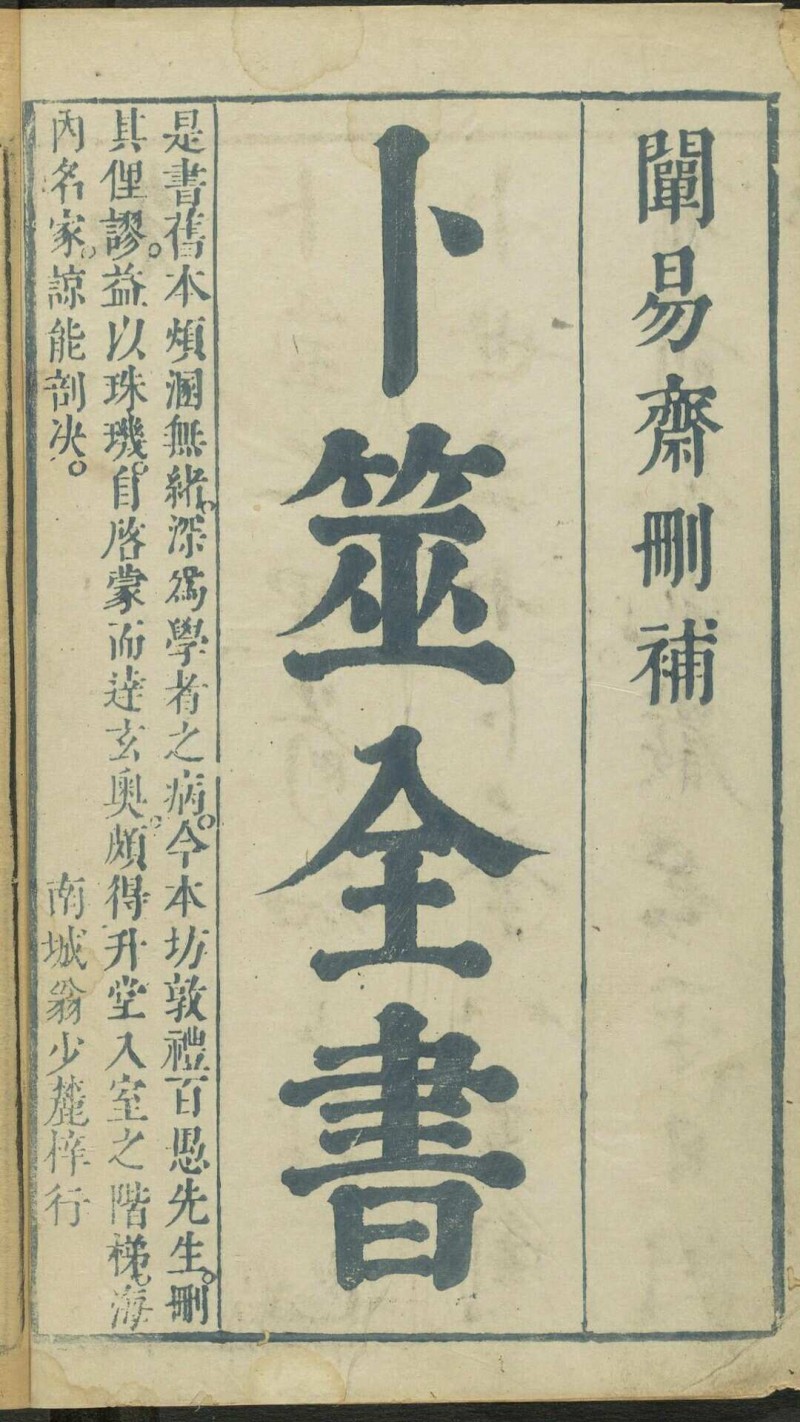 闡易齋刪補
卜筮全書
是書舊本煩溷無緒。深爲學者之病。今本坊敦禮百愚先生。刪
其俚謬。益以珠璣。自啓蒙而達玄奥。頗得升堂入室之階梯。海
內名家。諒能剖决。
南城翁少麓梓行